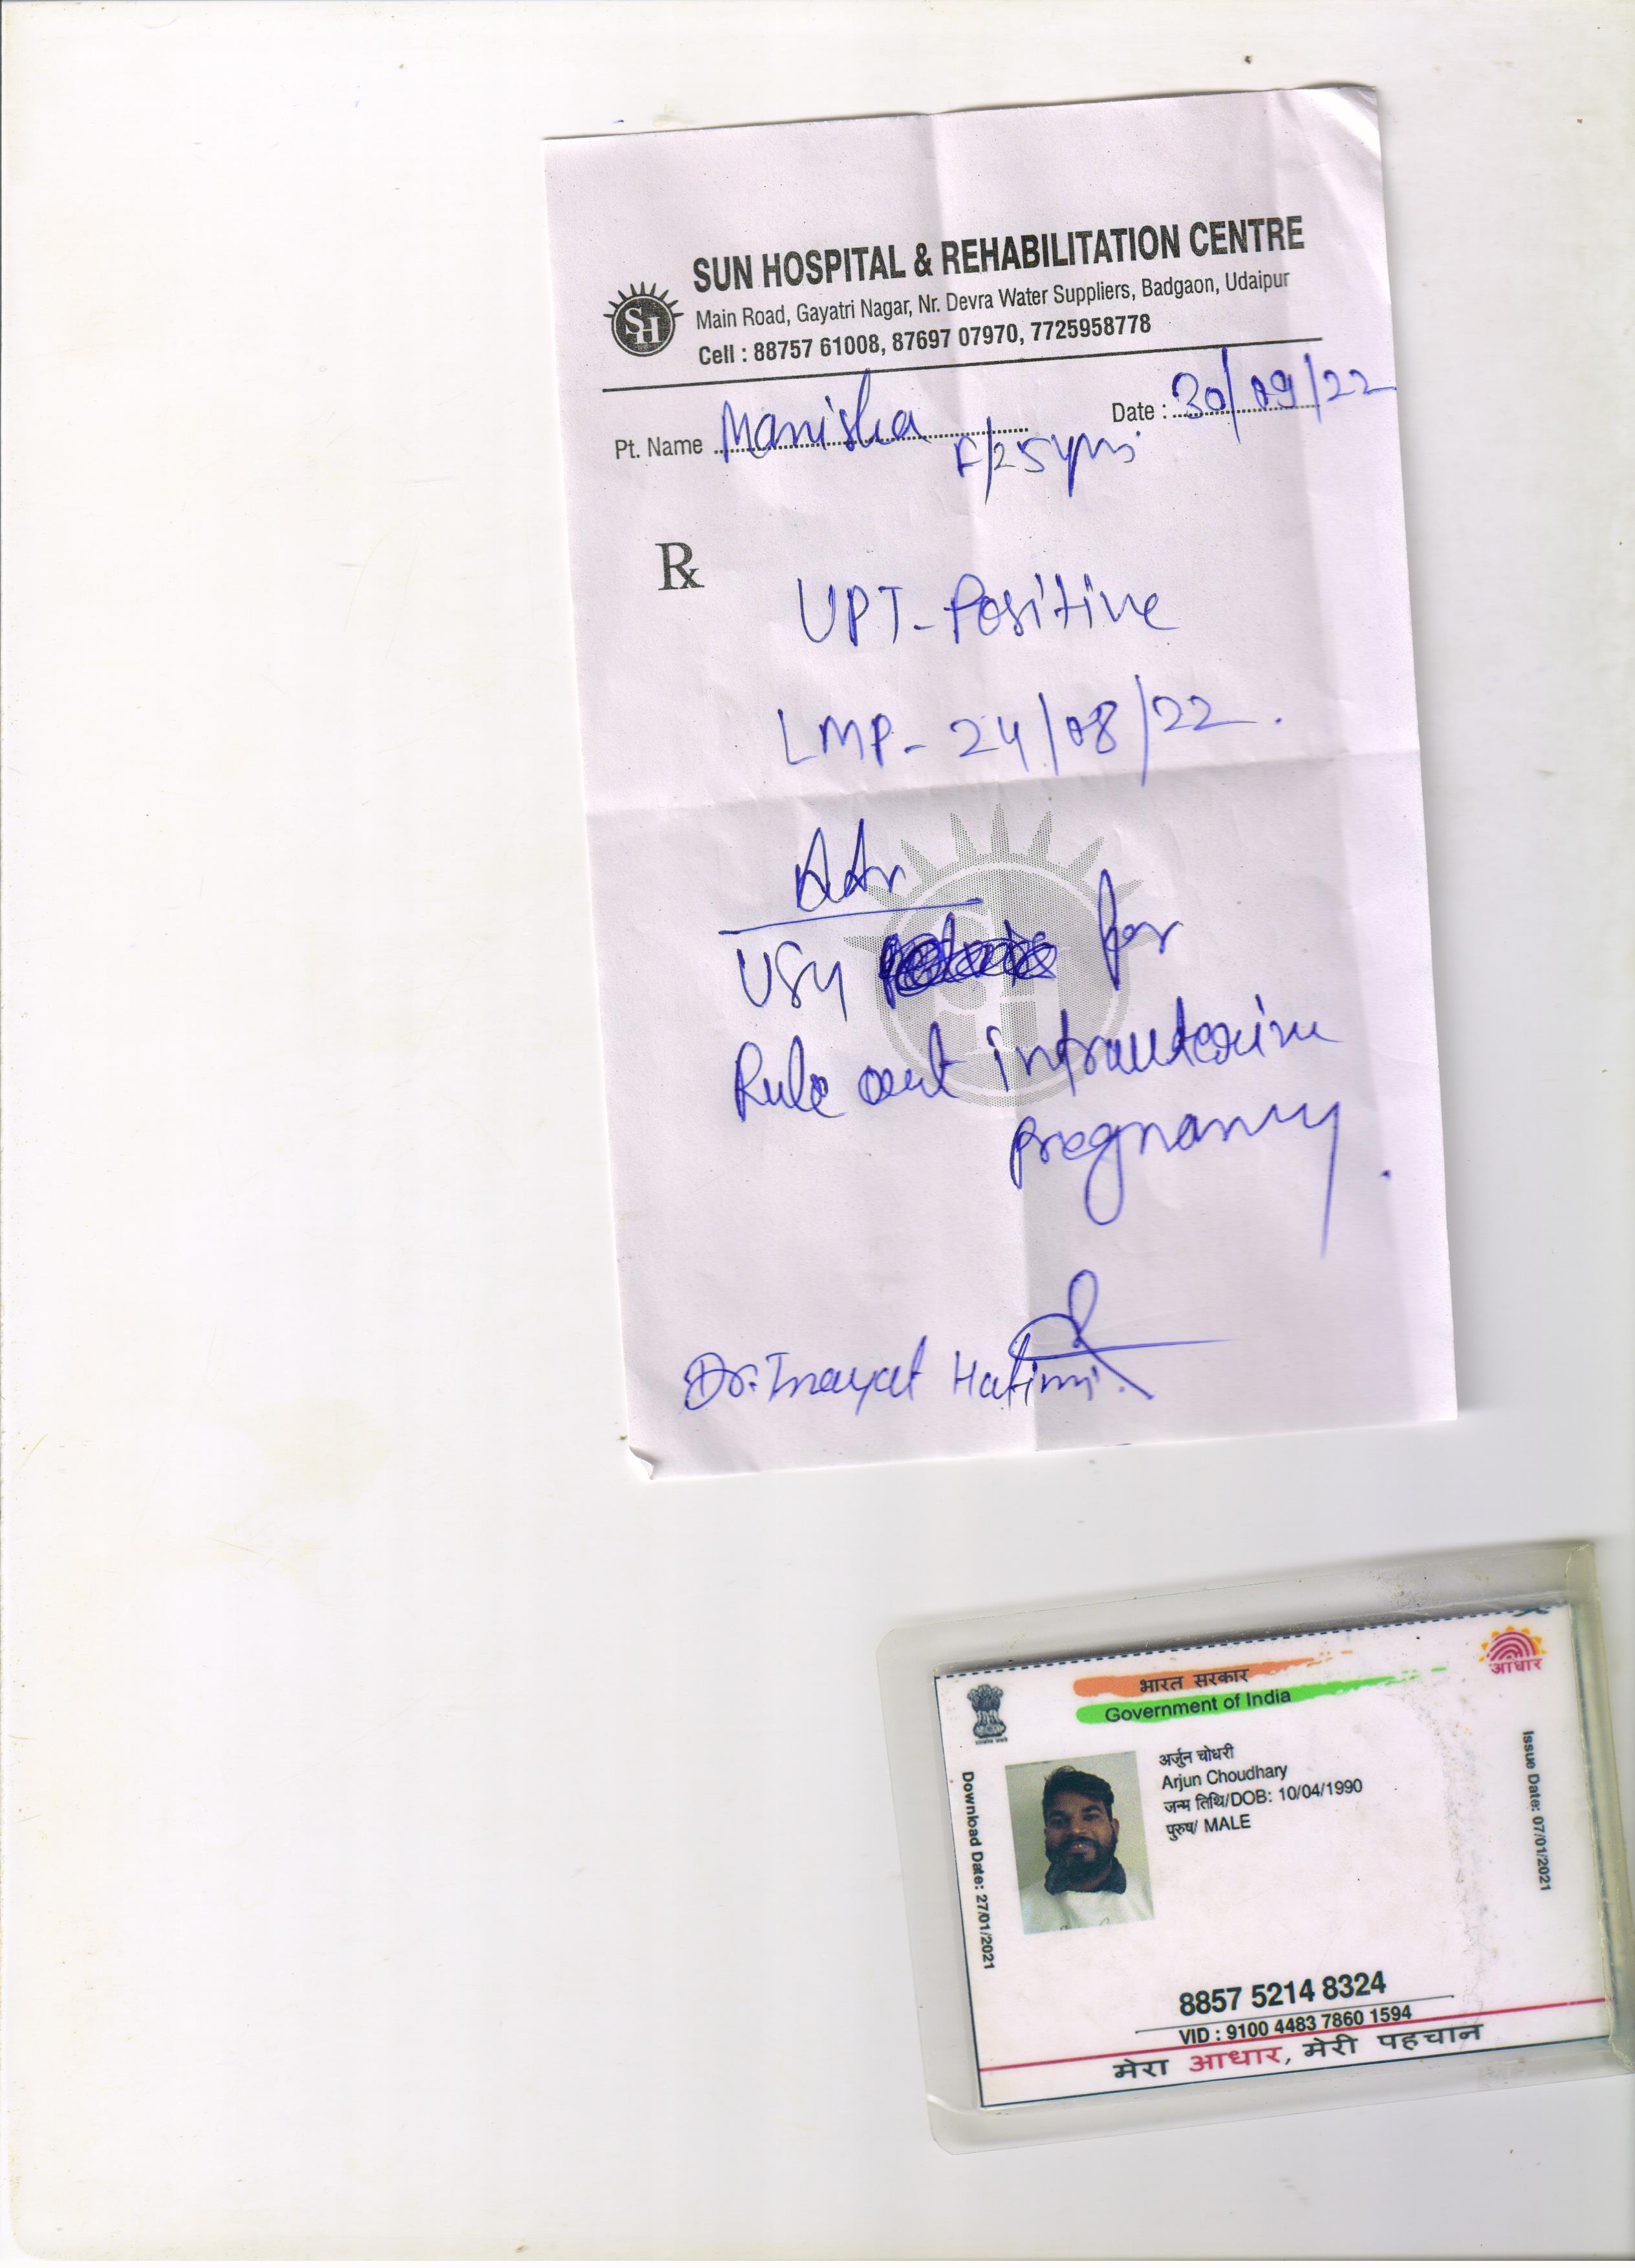 SUN HOSPITAL & REHABILITATION CENTRE
SH
Main Road, Gayatri Nagar, Nr. Devra Water Suppliers, Badgaon, Udaipur
Cell : 88757 61008, 87697 07970, 7725958778
Pt. Name Manisha Date : 30/09/22
F/25 yrs
Rx
UPT - Positive
LMP - 24/08/22.
Adv
USG for
Rule out intrauterine
pregnancy.
Dr. Inayat Hatimi
आधार
भारत सरकार
Government of India
अर्जुन चोधरी
Arjun Choudhary
जन्म तिथि/DOB: 10/04/1990
पुरुष/ MALE
Download Date: 27/01/2021
Issue Date: 07/01/2021
8857 5214 8324
VID : 9100 4483 7860 1594
मेरा आधार, मेरी पहचान